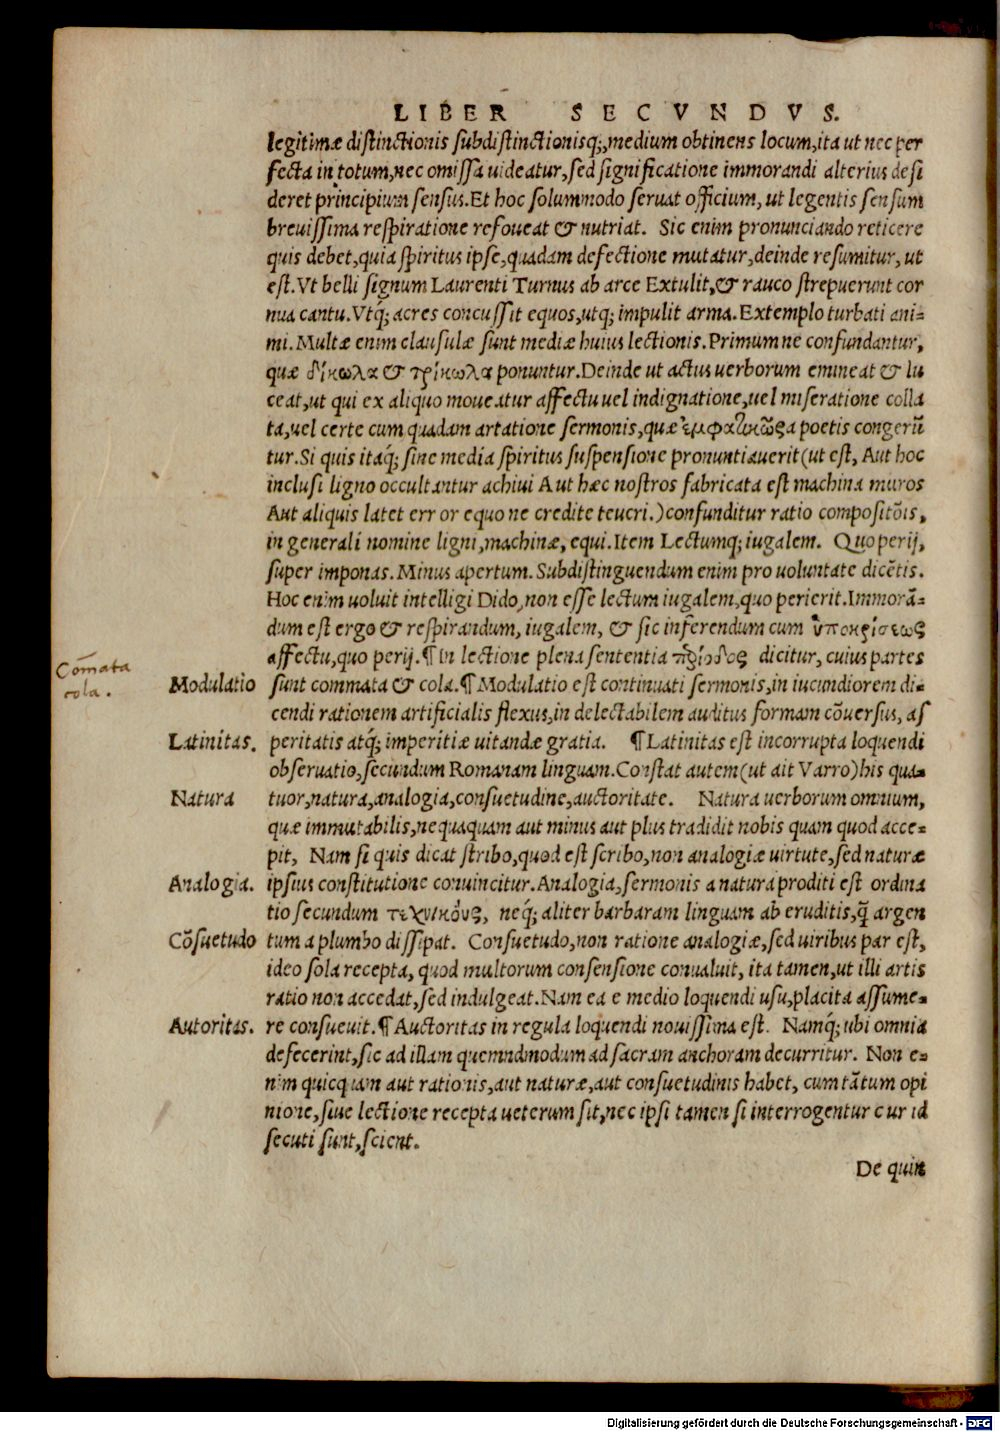 LIBER SECVNDVS.
legitimæ distinctionis subdistinctionisq;, medium obtinens locum, ita ut nec per
fecta in totum, nec omissa uideatur, sed significatione immorandi alterius desi
deret principium sensus. Et hoc solummodo seruat officium, ut legentis sensum
breuissima respiratione refoueat & nutriat. Sic enim pronunciando reticere
quis debet, quia spiritus ipse, quadam defectione mutatur, deinde resumitur, ut
est. Vt belli signum Laurenti Turnus ab arce Extulit, & rauco strepuerunt cor
nua cantu. Vtq; acres concussit equos, utq; impulit arma. Extemplo turbati ani-
mi. Multæ enim clausulæ sunt mediæ huius lectionis. Primum ne confundantur,
quæ δίκωλα & τρίκωλα ponuntur. Deinde ut actus uerborum emineat & lu
ceat, ut qui ex aliquo moueatur affectu uel indignatione, uel miseratione colla
ta, uel certe cum quadam artatione sermonis, quæ ἐμφατικῶς a poetis congerũ
tur. Si quis itaq; sine media spiritus suspensione pronuntiauerit (ut est, Aut hoc
inclusi ligno occultantur achiui Aut hæc nostros fabricata est machina muros
Aut aliquis latet error equo ne credite teucri.) confunditur ratio compositõis,
in generali nomine ligni, machinæ, equi. Item Lectumq; iugalem. Quo perij,
super imponas. Minus apertum. Subdistinguendum enim pro uoluntate dicẽtis.
Hoc enim uoluit intelligi Dido, non esse lectum iugalem, quo perierit. Immorã-
dum est ergo & respirandum, iugalem, & sic inferendum cum ὑποκρίσεως
affectu, quo perij. ¶ In lectione plena sententia πρίοδος dicitur, cuius partes
Cõmata
cola.
Modulatio sunt commata & cola. ¶ Modulatio est continuati sermonis, in iucundiorem di-
cendi rationem artificialis flexus, in delectabilem auditus formam cõuersus, as
Latinitas. peritatis atq; imperitiæ uitandæ gratia. ¶ Latinitas est incorrupta loquendi
obseruatio, secundum Romanam linguam. Constat autem (ut ait Varro) his qua-
Natura tuor, natura, analogia, consuetudine, auctoritate. Natura uerborum omnium,
quæ immutabilis, nequaquam aut minus aut plus tradidit nobis quam quod acce-
pit, Nam si quis dicat stribo, quod est scribo, non analogiæ uirtute, sed naturæ
Analogia. ipsius constitutione conuincitur. Analogia, sermonis a natura proditi est ordina
tio secundum τεχνικούς, neq; aliter barbaram linguam ab eruditis, q̃ argen
Cõsuetudo tum a plumbo dissipat. Consuetudo, non ratione analogiæ, sed uiribus par est,
ideo sola recepta, quod multorum consensione conualuit, ita tamen, ut illi artis
ratio non accedat, sed indulgeat. Nam ea e medio loquendi usu, placita assume-
Autoritas. re consueuit. ¶ Auctoritas in regula loquendi nouissima est. Namq; ubi omnia
defecerint, sic ad illam quemadmodum ad sacram anchoram decurritur. Non e-
nim quicquam aut rationis, aut naturæ, aut consuetudinis habet, cum tãtum opi
nione, siue lectione recepta ueterum sit, nec ipsi tamen si interrogentur cur id
secuti sunt, scient.
De quin
Digitalisierung gefördert durch die Deutsche Forschungsgemeinschaft - DFG